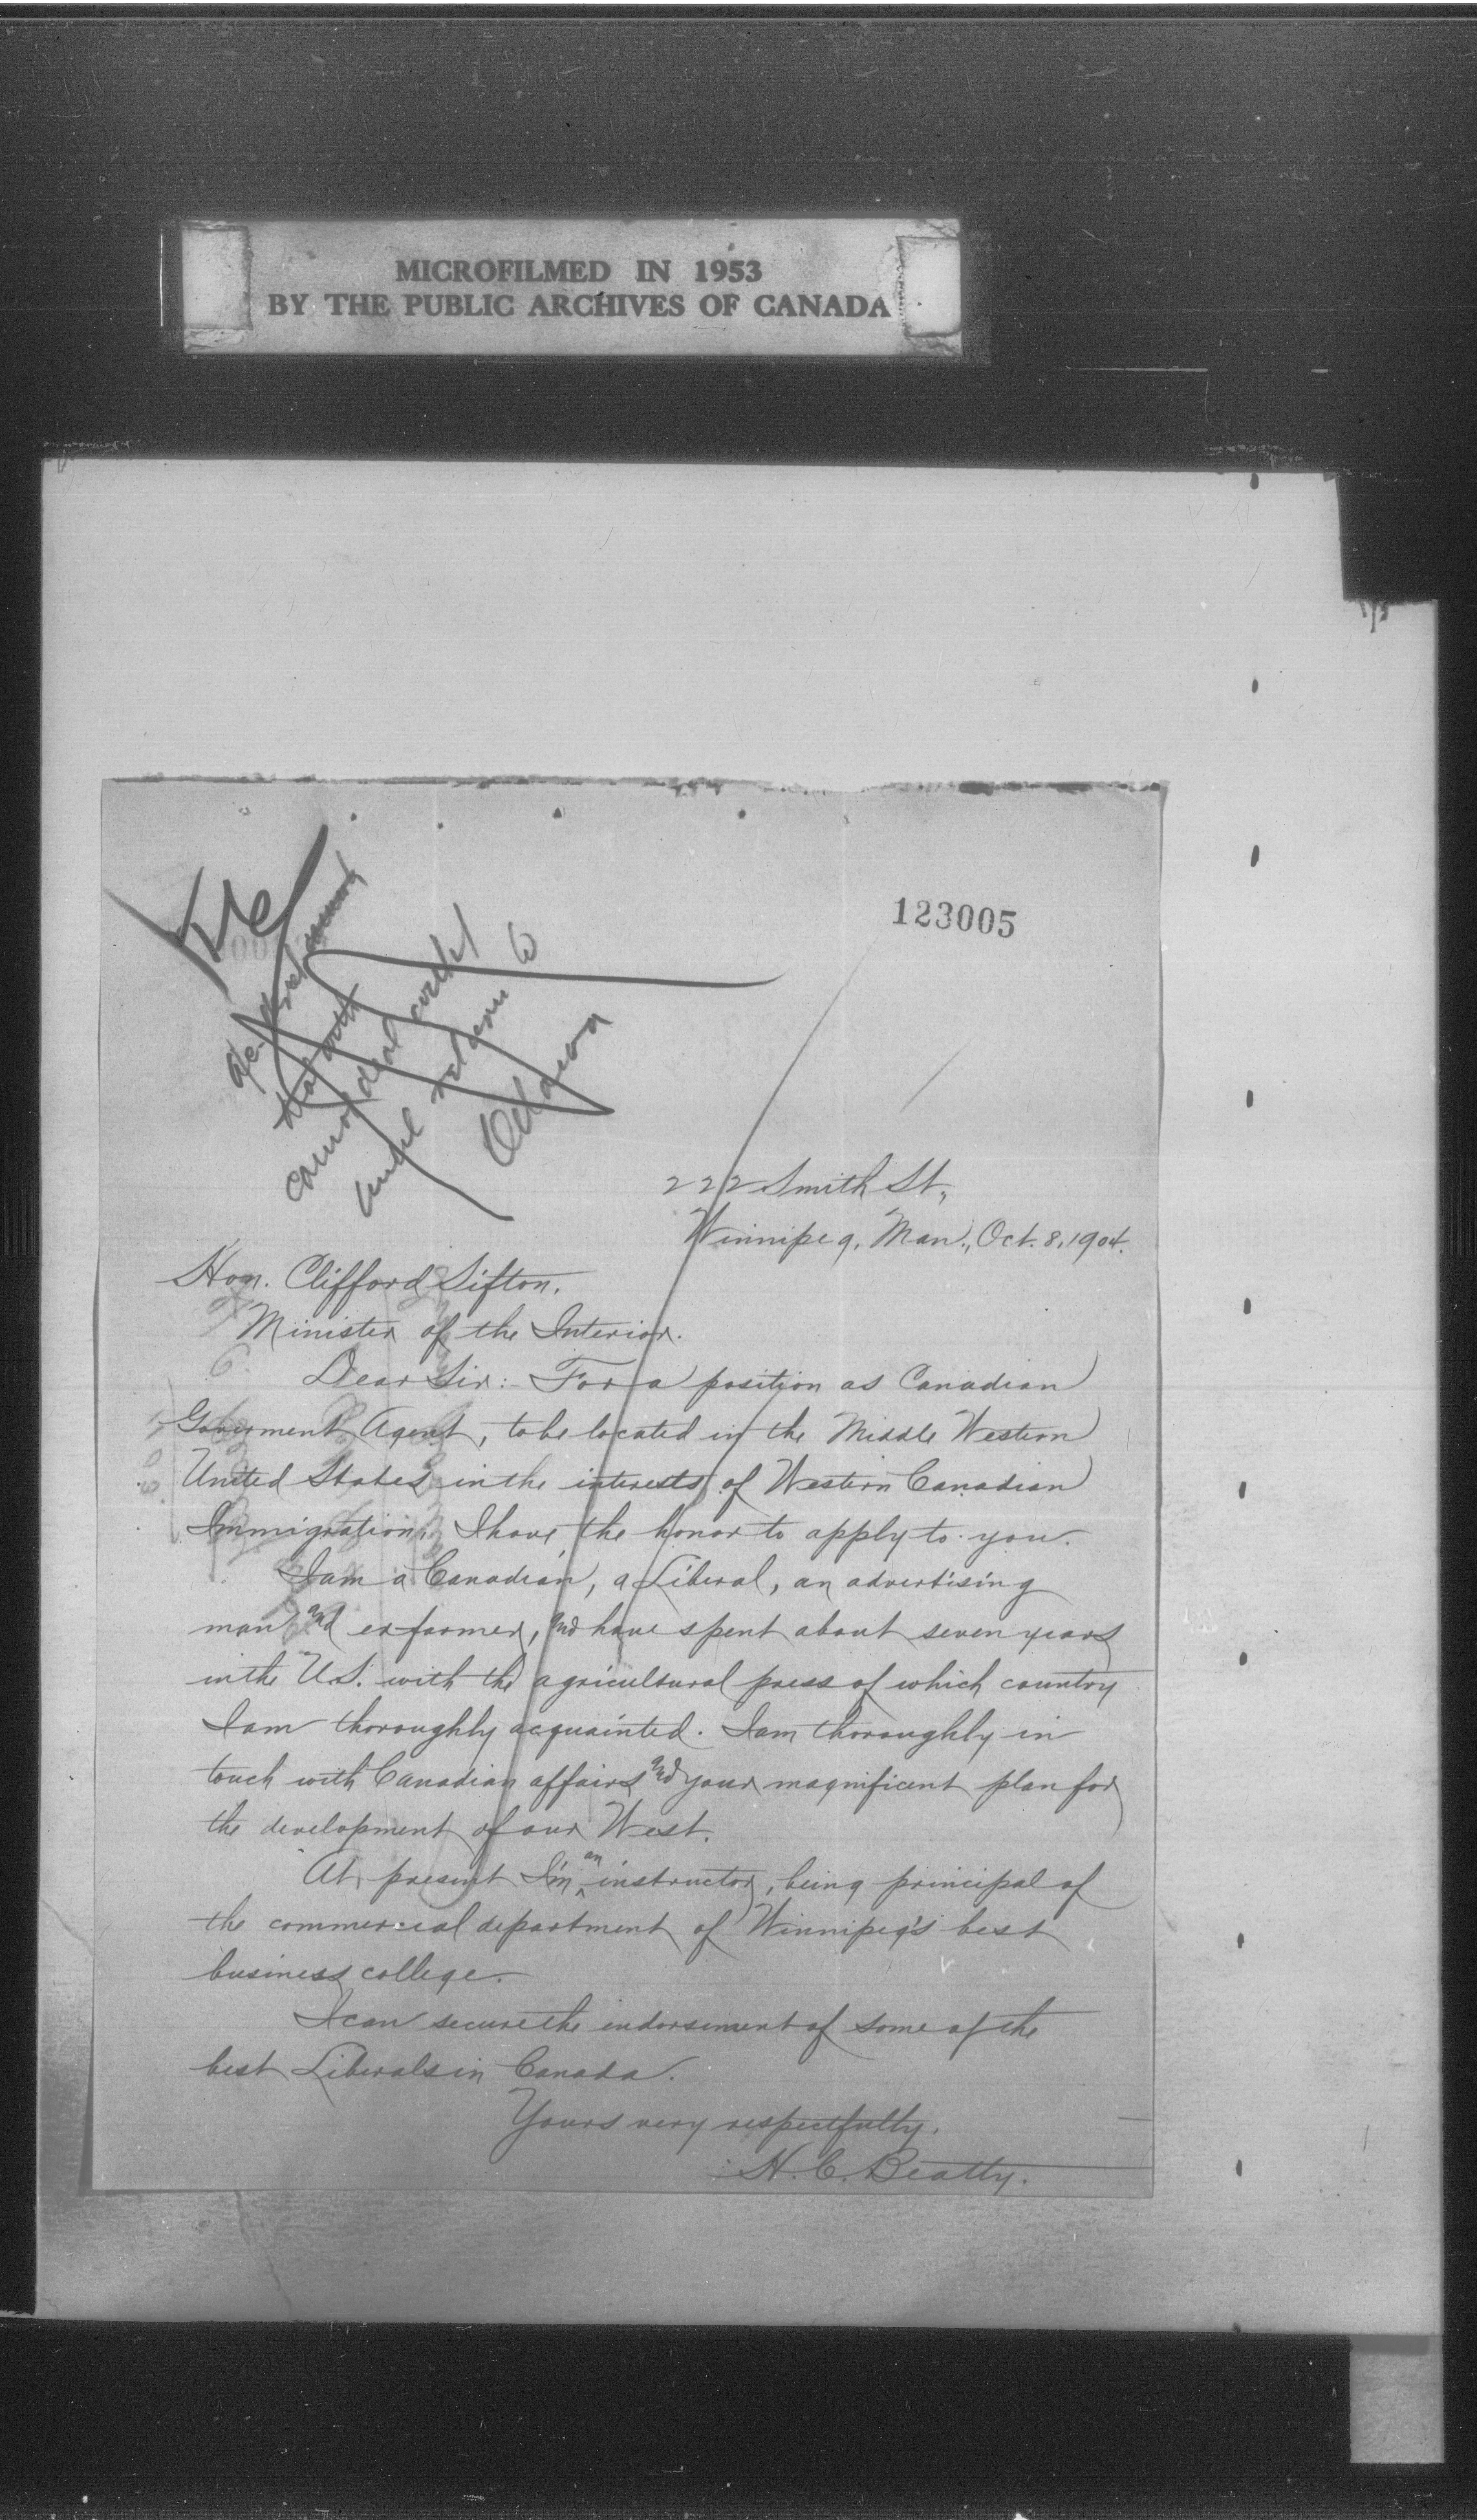 MICROFILMED IN 1953
BY THE PUBLIC ARCHIVES OF CANADA
123005
cannot deal with
until return to
Ottawa
222 Smith St.,
Winnipeg, Man., Oct. 8, 1904.
Hon. Clifford Sifton.
Minister of the Interior.
Dear Sir:- For a position as Canadian
Government Agent, to be located in the Middle Western
United States in the interests of Western Canadian
Immigration, I have the honor to apply to you.
I am a Canadian, a Liberal, an advertising
man and ex farmer, and have spent about seven years
in the U.S. with the agricultural press of which country
I am thoroughly acquainted. I am thoroughly in
touch with Canadian affairs and your magnificent plan for
the development of our West.
At present I'm an instructor, being principal of
the commercial department of Winnipeg's best
business college.
I can secure the indorsement of some of the
best Liberals in Canada.
Yours very respectfully,
H. C. Beatty.